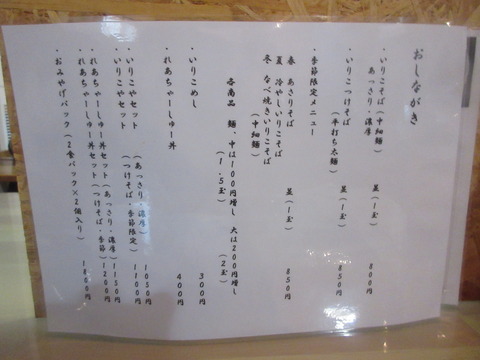 おしながき
・いりこそば(中細麺)
あっさり・濃厚 並(1玉) 800円
・いりこつけそば 並(1玉) 850円
(平打ち太麺)
・季節限定メニュー
春 あさりそば 並(1玉) 850円
夏 冷やしいりこそば
冬 なべ焼きいりこそば
(中細麺)
各商品 麺、中は100円増し 大は200円増し
(1.5玉) (2玉)
・いりこめし 300円
・れあちゃーしゅー丼 400円
・いりこやセット (あっさり・濃厚) 1050円
・いりこやセット (つけそば・季節限定) 1100円
・れあちゃーしゅー丼セット(あっさり・濃厚) 1150円
・れあちゃーしゅー丼セット(つけそば・季節) 1200円
・おみやげパック(2食パック×2個入り) 1800円